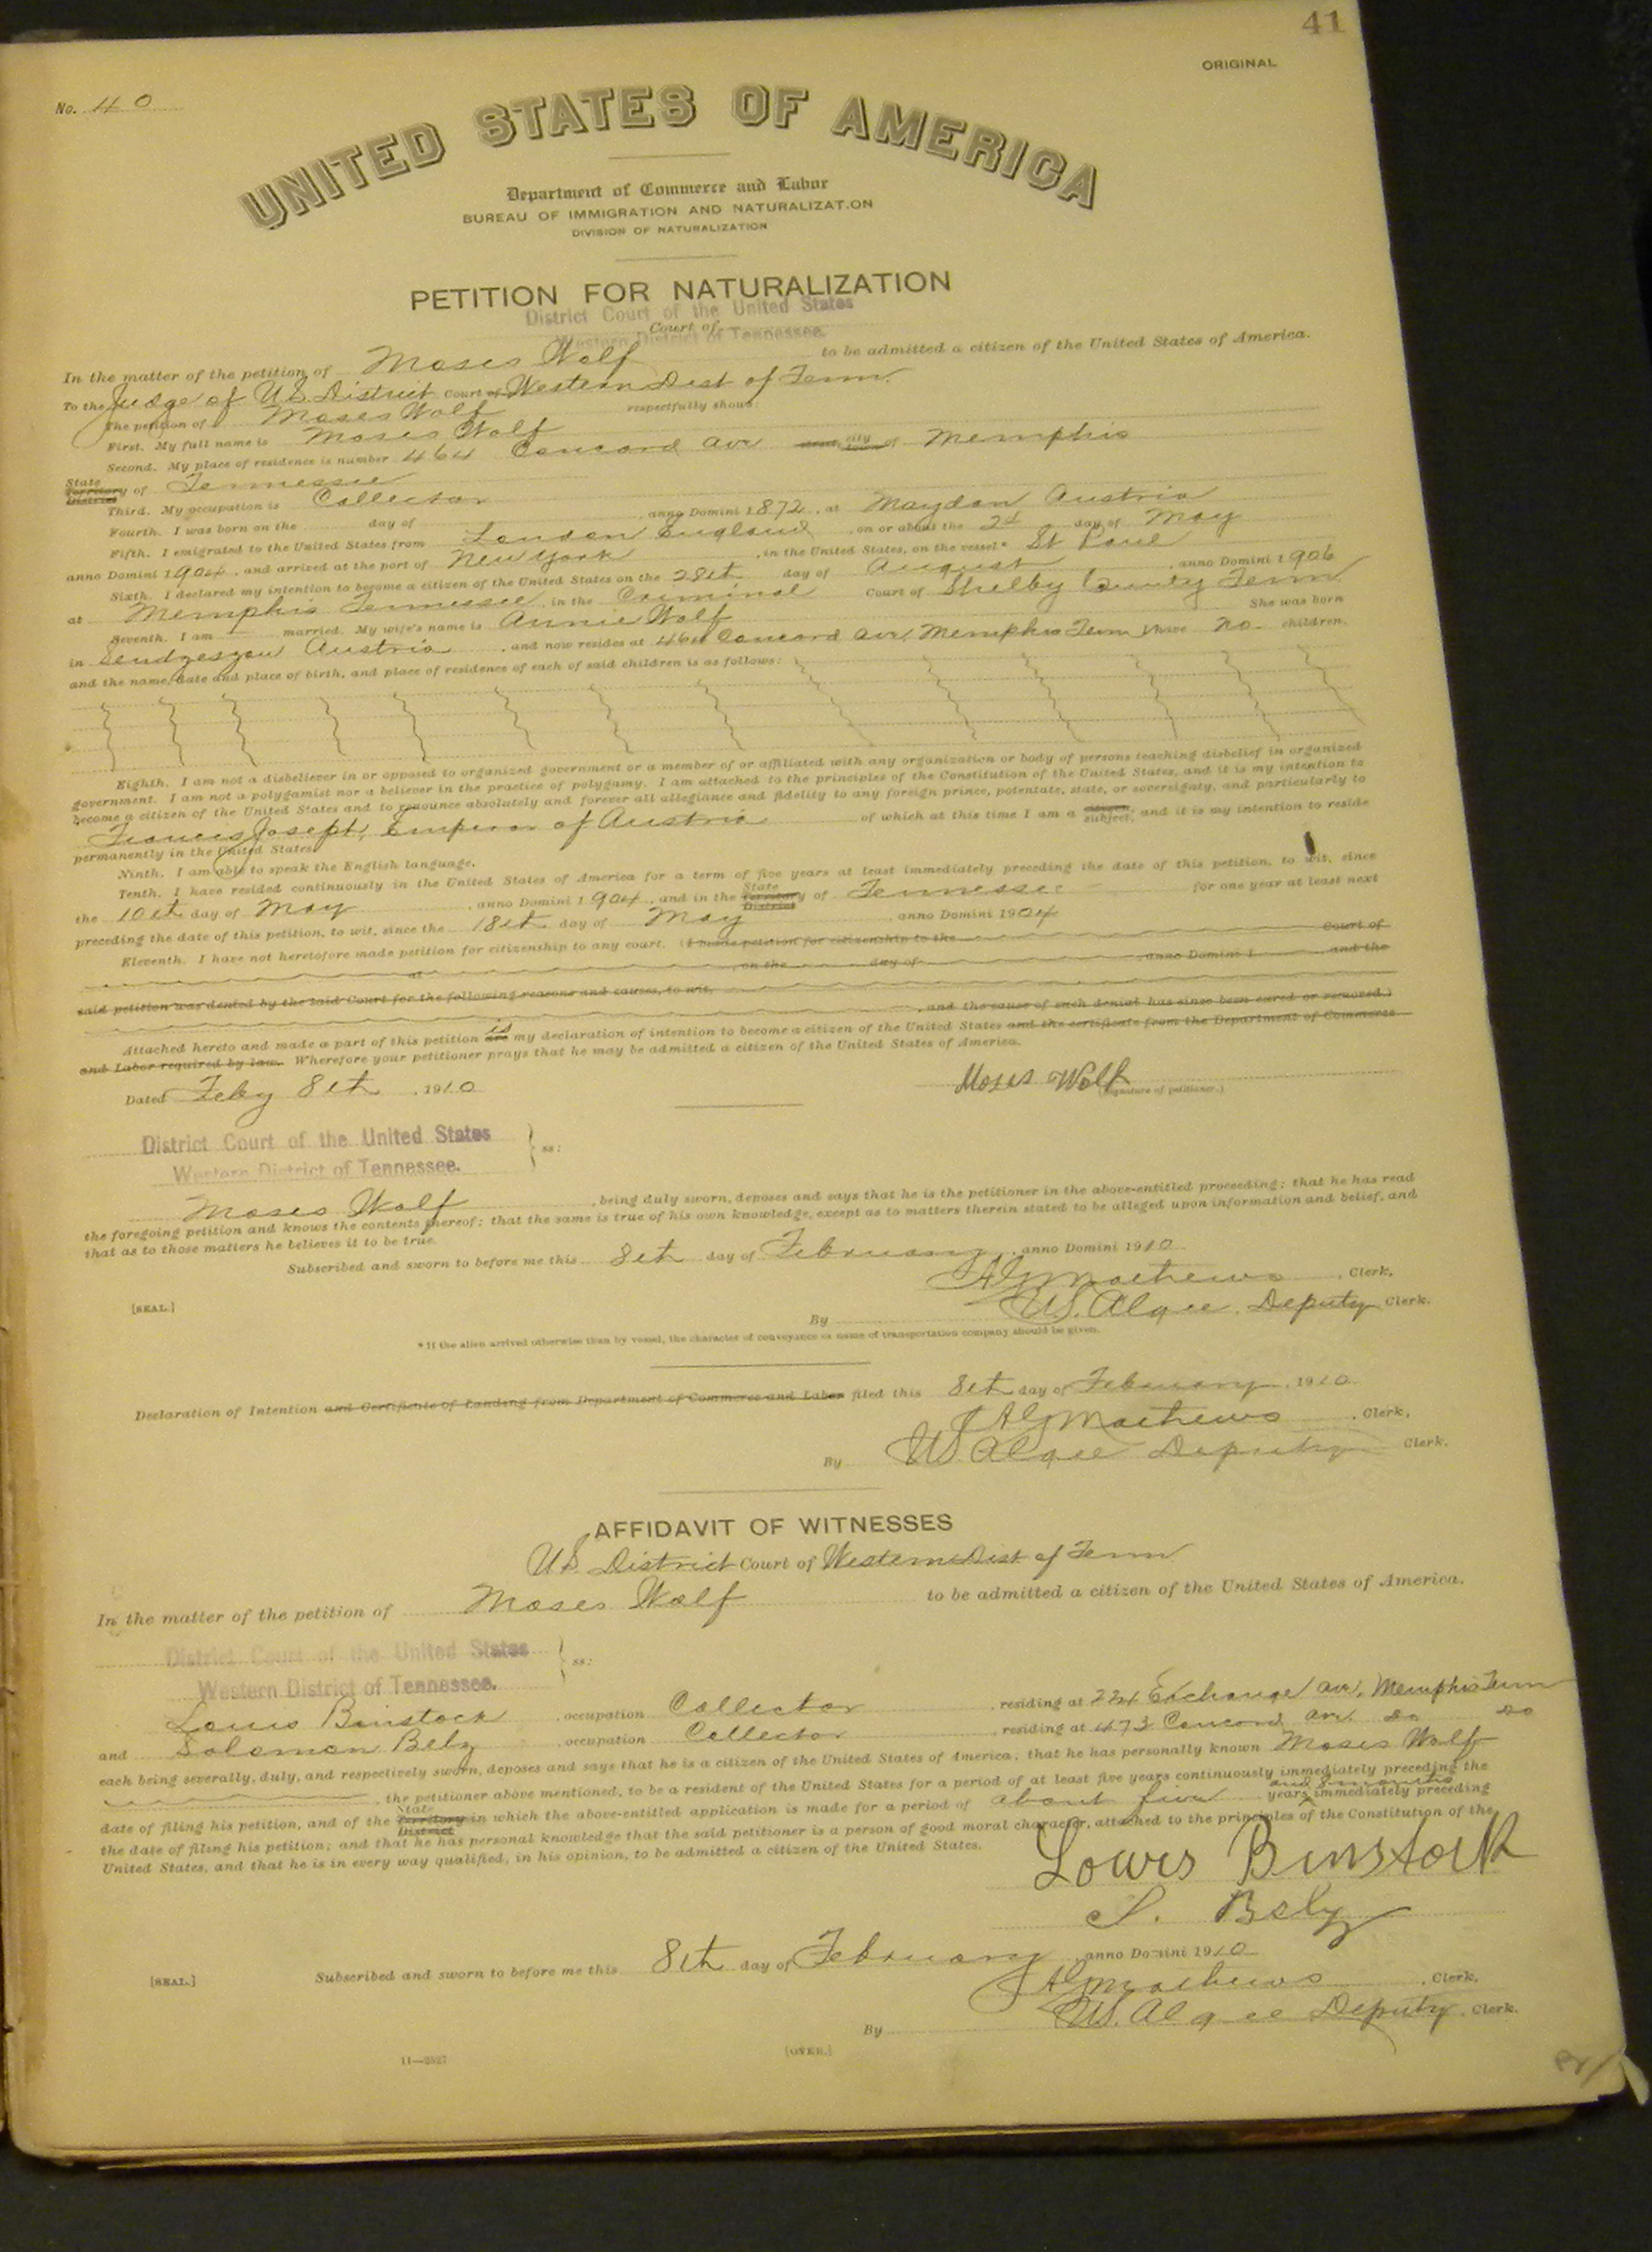 41
ORIGINAL
No. 40
UNITED STATES OF AMERICA
Department of Commerce and Labor
BUREAU OF IMMIGRATION AND NATURALIZATION
DIVISION OF NATURALIZATION
PETITION FOR NATURALIZATION
District Court of the United States
Court of
Western District of Tennessee.
In the matter of the petition of Moses Wolf to be admitted a citizen of the United States of America.
To the Judge of U.S. District Court of Western Dist of Tenn.
The petition of Moses Wolf respectfully shows:
First. My full name is Moses Wolf
Second. My place of residence is number 464 Concord ave city of Memphis
State Territory District of Tennessee
Third. My occupation is Collector
Fourth. I was born on the day of anno Domini 1872, at Maydan Austria
Fifth. I emigrated to the United States from London England on or about the 2d day of May
anno Domini 1904, and arrived at the port of New York, in the United States, on the vessel* St Paul
Sixth. I declared my intention to become a citizen of the United States on the 28th day of August, anno Domini 1906
at Memphis Tennessee, in the Criminal Court of Shelby County Tenn
Seventh. I am married. My wife's name is Annie Wolf She was born
in Austria, and now resides at 464 Concord ave, Memphis Tenn I have no children,
and the name, date and place of birth, and place of residence of each of said children is as follows:
Eighth. I am not a disbeliever in or opposed to organized government or a member of or affiliated with any organization or body of persons teaching disbelief in organized
government. I am not a polygamist nor a believer in the practice of polygamy. I am attached to the principles of the Constitution of the United States, and it is my intention to
become a citizen of the United States and to renounce absolutely and forever all allegiance and fidelity to any foreign prince, potentate, state, or sovereignty, and particularly to
Frances Joseph, Emperor of Austria of which at this time I am a subject, and it is my intention to reside
permanently in the United States.
Ninth. I am able to speak the English language.
Tenth. I have resided continuously in the United States of America for a term of five years at least immediately preceding the date of this petition, to wit, since
the 10th day of May, anno Domini 1904, and in the State Territory District of Tennessee for one year at least next
preceding the date of this petition, to wit, since the 18th day of May, anno Domini 1904
Eleventh. I have not heretofore made petition for citizenship to any court. (I made petition for citizenship to the Court of
at, on the day of, anno Domini 1, and the
said petition was denied by the said Court for the following reasons and causes, to wit,
, and the cause of such denial has since been cured or removed.)
Attached hereto and made a part of this petition are is my declaration of intention to become a citizen of the United States and the certificate from the Department of Commerce
and Labor required by law. Wherefore your petitioner prays that he may be admitted a citizen of the United States of America.
Dated Feby 8th, 1910
Moses Wolf
(Signature of petitioner.)
District Court of the United States
Western District of Tennessee. ss:
Moses Wolf, being duly sworn, deposes and says that he is the petitioner in the above-entitled proceeding; that he has read
the foregoing petition and knows the contents thereof; that the same is true of his own knowledge, except as to matters therein stated to be alleged upon information and belief, and
that as to those matters he believes it to be true.
Subscribed and sworn to before me this 8th day of February, anno Domini 1910
Mathews, Clerk,
[SEAL.]
By W.S. Algee, Deputy Clerk.
* If the alien arrived otherwise than by vessel, the character of conveyance or name of transportation company should be given.
Declaration of Intention and Certificate of Landing from Department of Commerce and Labor filed this 8th day of February, 1910
Mathews, Clerk,
By W.S. Algee Deputy Clerk.
AFFIDAVIT OF WITNESSES
U.S. District Court of Western Dist of Tenn
In the matter of the petition of Moses Wolf to be admitted a citizen of the United States of America.
District Court of the United States
Western District of Tennessee. ss:
Louis Binstock, occupation Collector, residing at 224 Exchange ave, Memphis Tenn
and Solomon Belz, occupation Collector, residing at 473 Concord ave. do do
each being severally, duly, and respectively sworn, deposes and says that he is a citizen of the United States of America; that he has personally known Moses Wolf
, the petitioner above mentioned, to be a resident of the United States for a period of at least five years continuously immediately preceding the
date of filing his petition, and of the State Territory District in which the above-entitled application is made for a period of about five years and 8 months immediately preceding
the date of filing his petition; and that he has personal knowledge that the said petitioner is a person of good moral character, attached to the principles of the Constitution of the
United States, and that he is in every way qualified, in his opinion, to be admitted a citizen of the United States.
Louis Binstock
S. Belz
[SEAL.]
Subscribed and sworn to before me this 8th day of February, anno Domini 1910
Mathews, Clerk,
By W.S. Algee Deputy, Clerk.
11—2527
[OVER.]